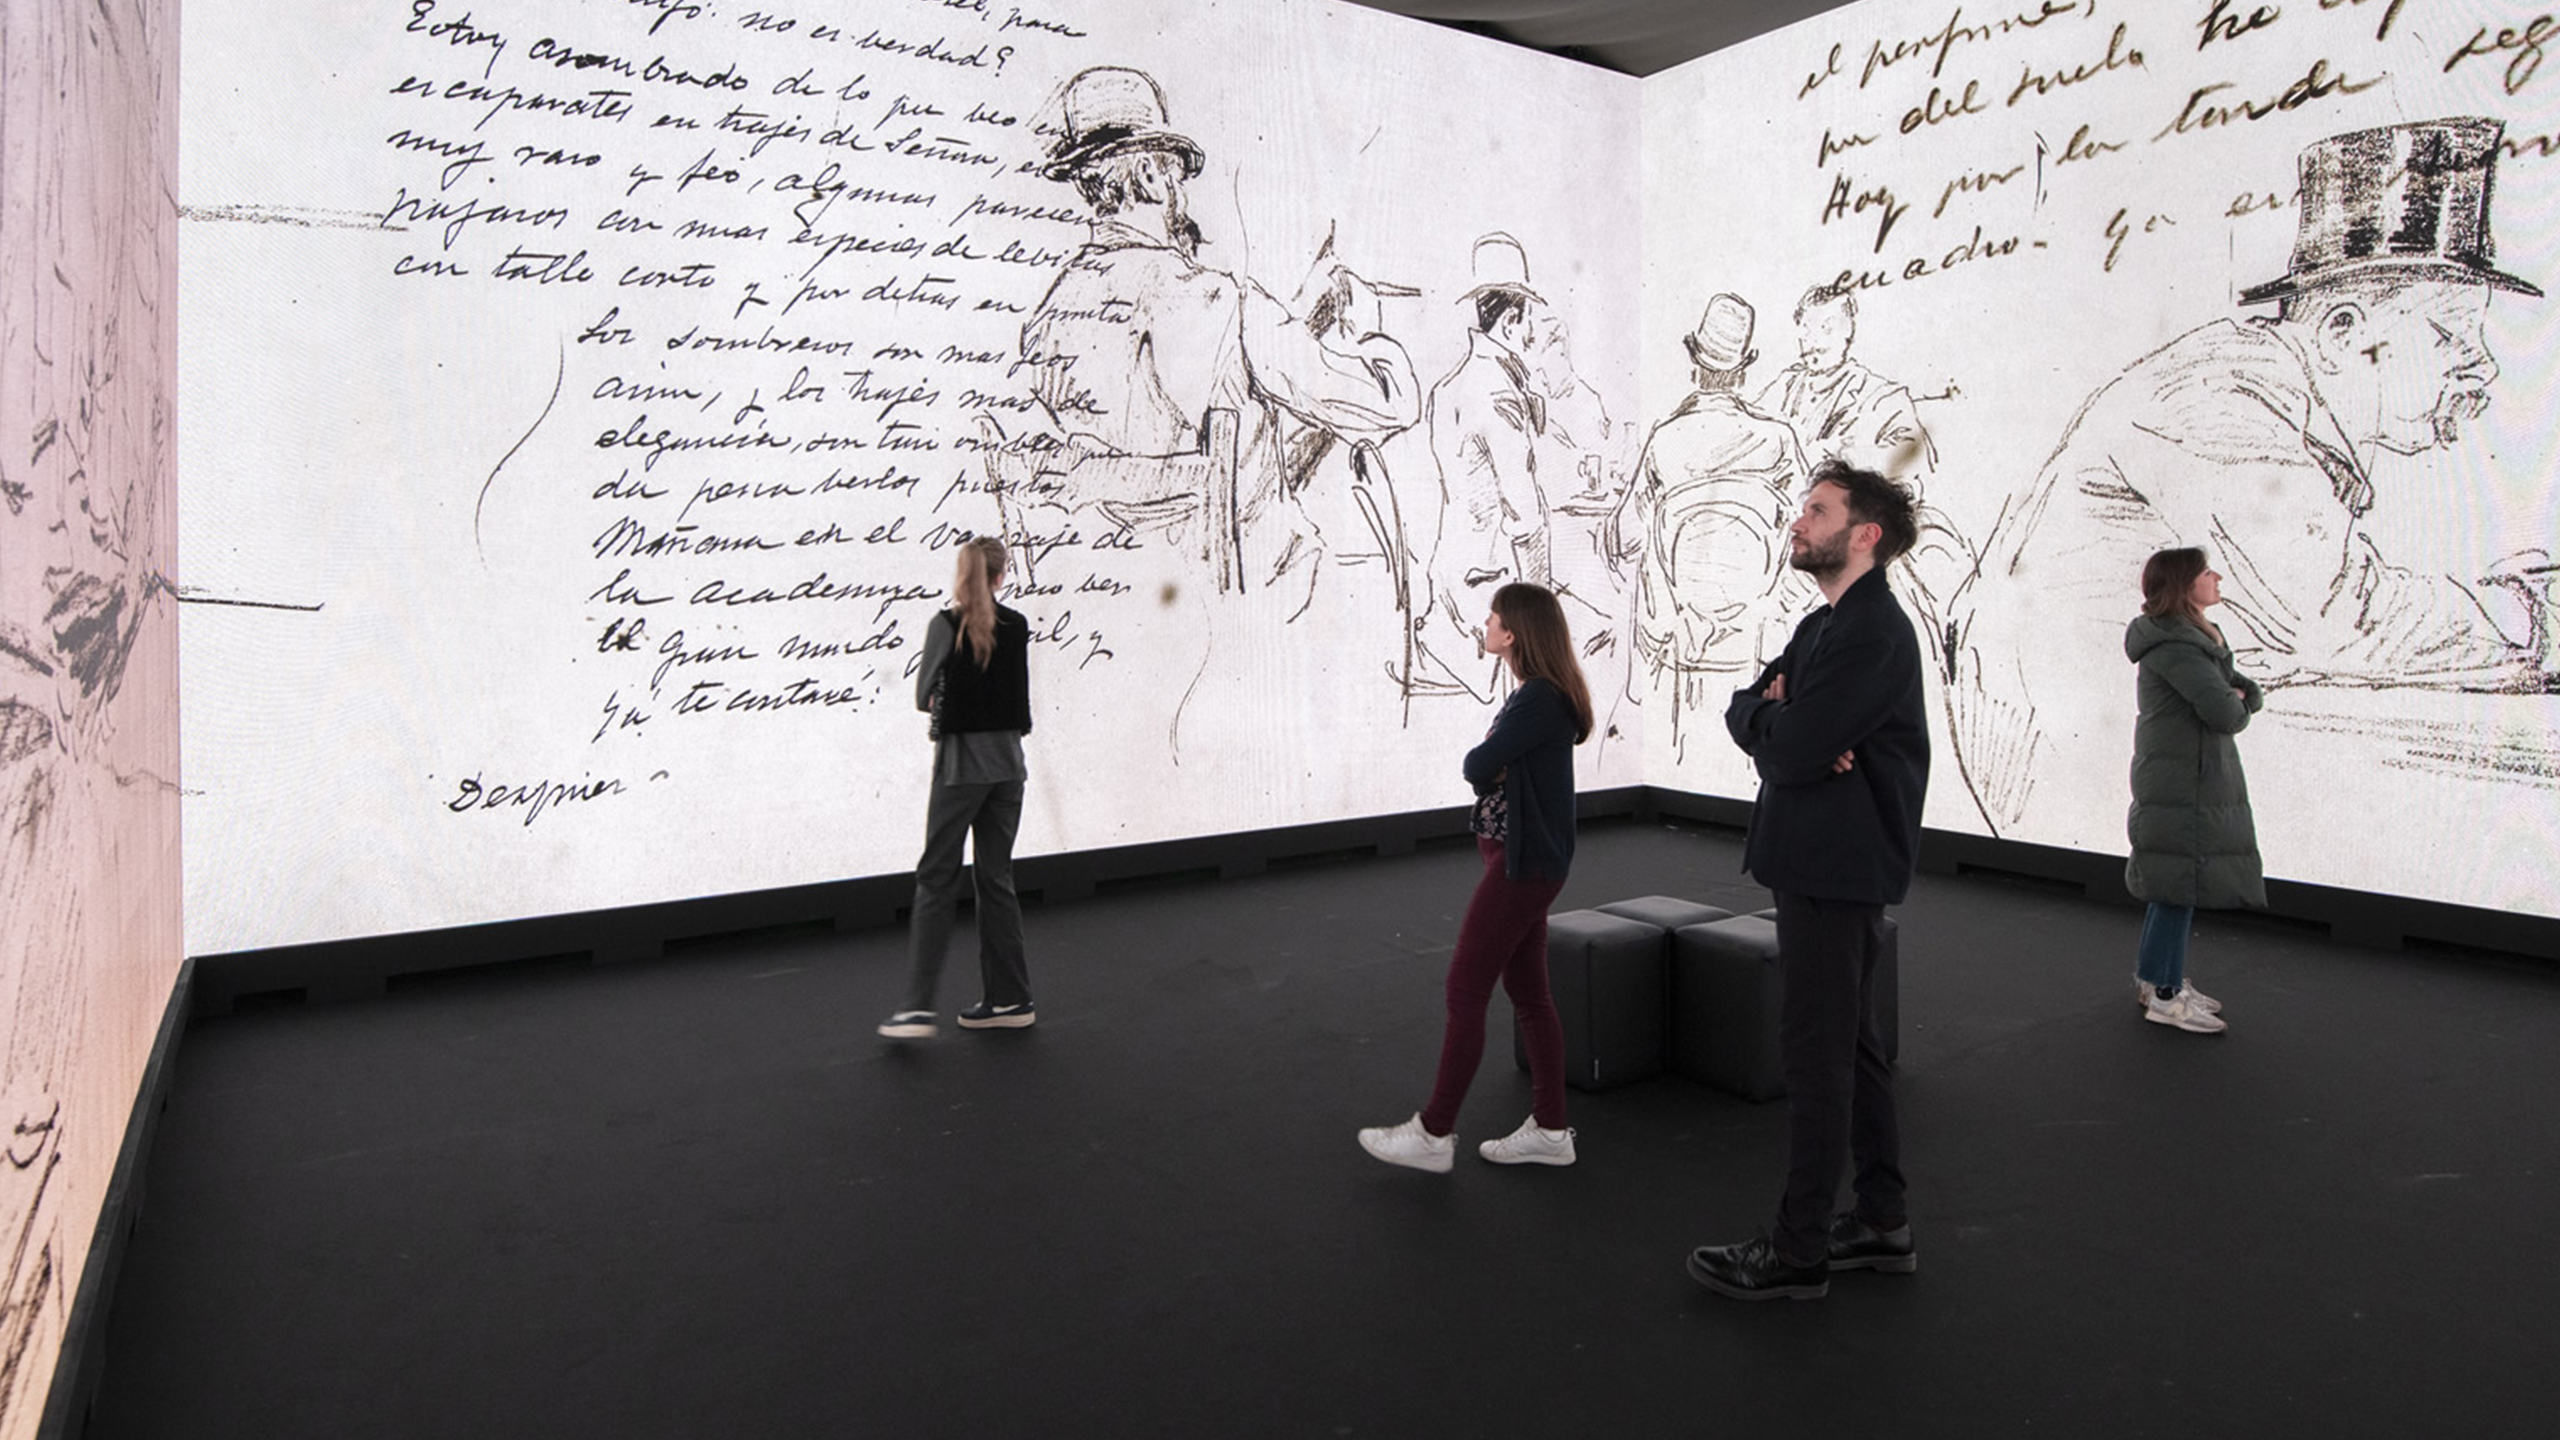 para
no es verdad?
Estoy asombrado de lo que veo en
escaparates en trajes de Señora, es
muy raro y feo, algunas parecen
pajaros con unas especies de levitas
con talle corto y por detras en punta
Los sombreros son mas feos
aun, y los trajes mas de
elegancia, son tan
da pena verlos puestos.
Mañana en el de
la academya, pero ver
el gran mundo y
ya te contaré:
Despues
el perfume,
por del suelo he
Hoy por la tarde
cuadro. ya
seg